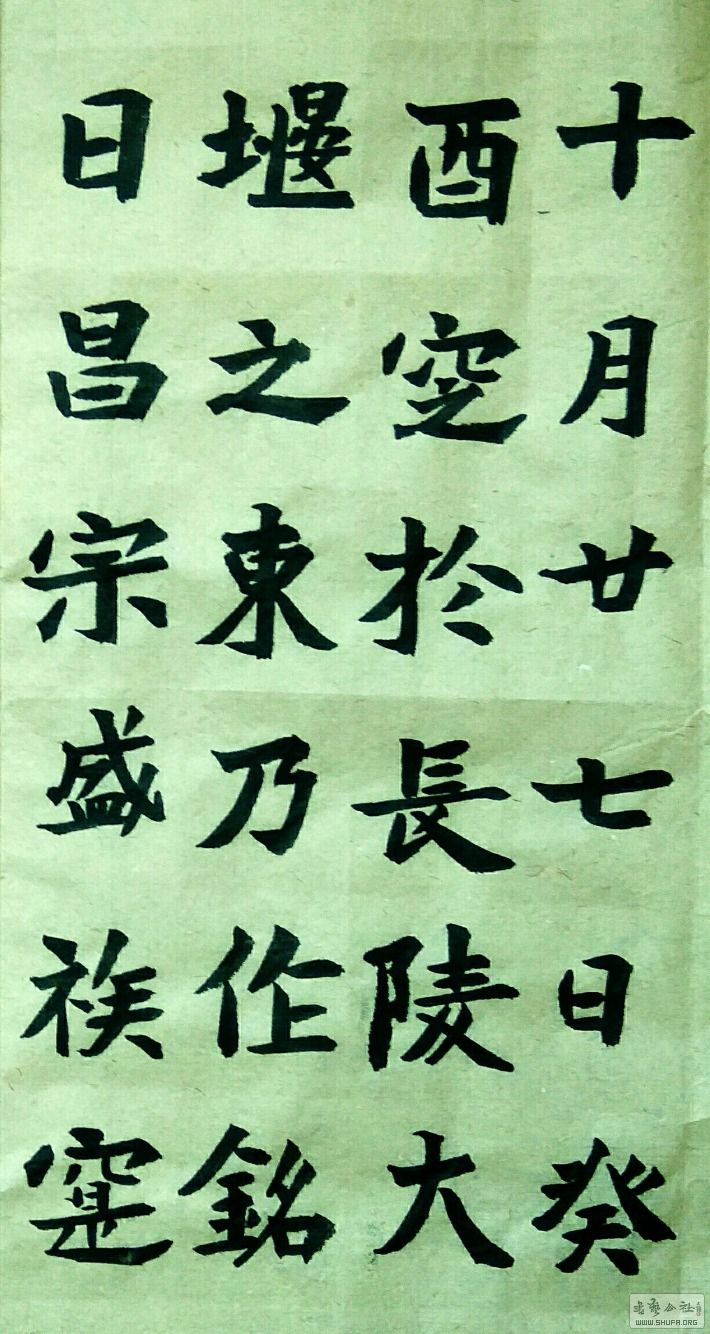 十月廿七日癸
酉窆於長陵大
堰之東乃作銘
日昌宗盛族寔
WWW.SHUFA.ORG